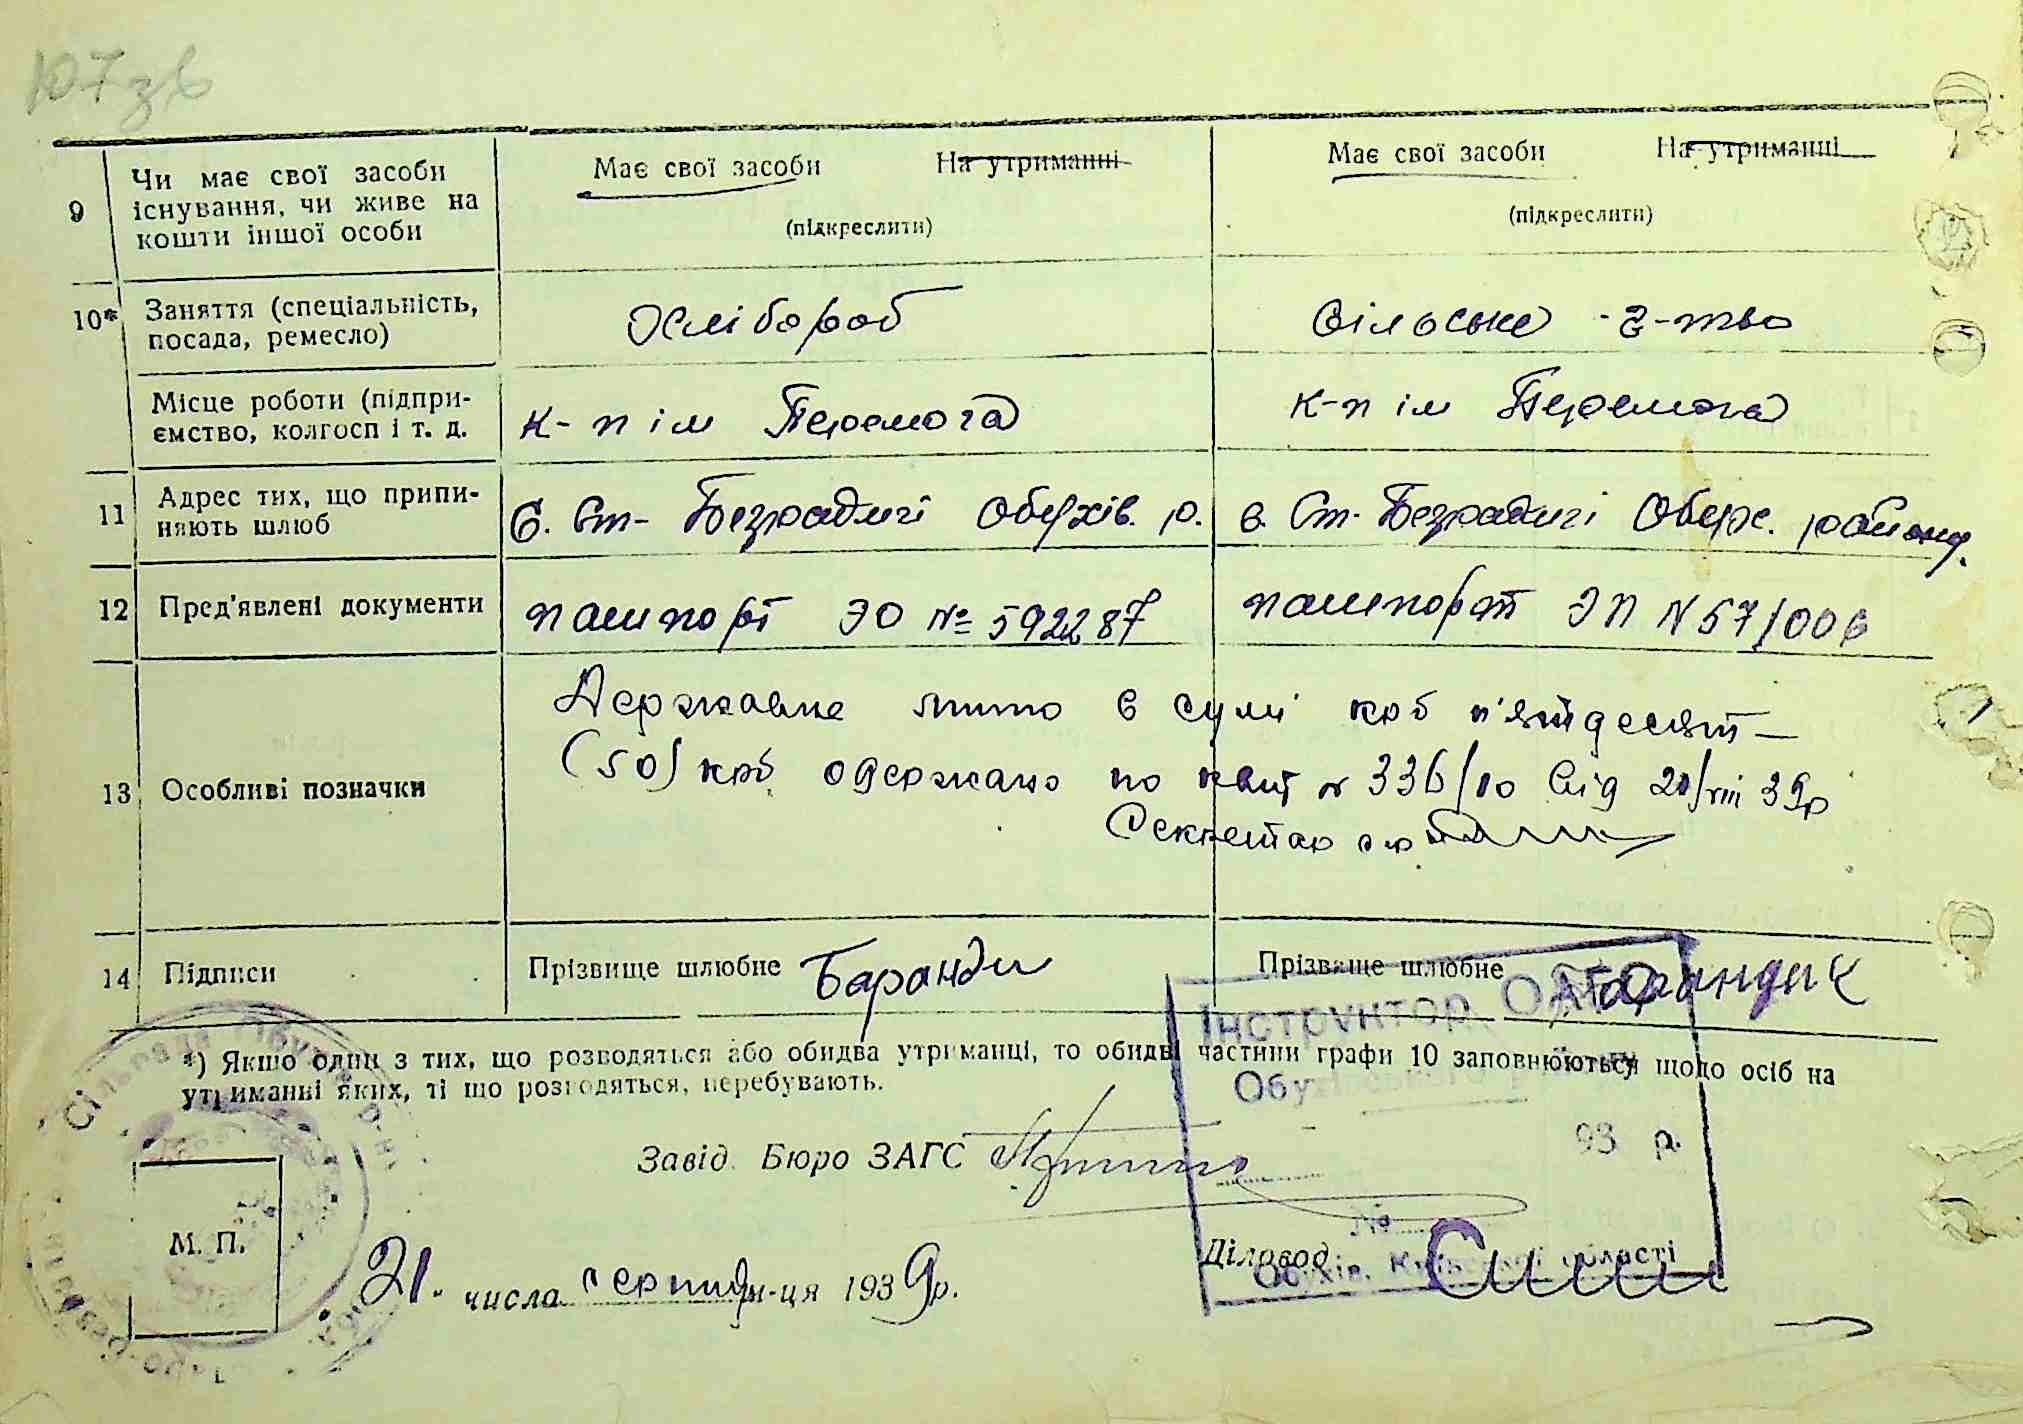 107 зв
9 Чи має свої засоби існування, чи живе на кошти іншої особи
Має свої засоби На утриманні
(підкреслити)
Має свої засоби На утриманні
(підкреслити)
10* Заняття (спеціальність, посада, ремесло)
Хлібороб
Сільське г-тво
Місце роботи (підпри-
ємство, колгосп і т. д.
к-п ім Перемога
к-п ім Перемога
11 Адрес тих, що припи-
няють шлюб
С. Ст- Безрадичі Обухів. р.
с. Ст. Безрадичі Обух. району.
12 Пред'явлені документи
пашпорт ЭО № 592287
пашпорт ЭП N 571006
13 Особливі позначки
Державне мито в сумі крб п'ятдесят —
(50) крб одержано по квит № 336/10 від 20/VIII 39р
Секретар с/р
14 Підписи
Прізвище шлюбне Баранди
Прізвище шлюбне
*) Якшо один з тих, що розводяться або обидва утриманці, то обидві частини графи 10 заповнюються щодо осіб на
утриманні яких, ті що розводяться, перебувають.
Інструктор ОАГС
Обухівського
93 р.
№
Обухів, Київської області
Завід. Бюро ЗАГС
Діловод
М. П.
21. числа серпня м-ця 1939р.